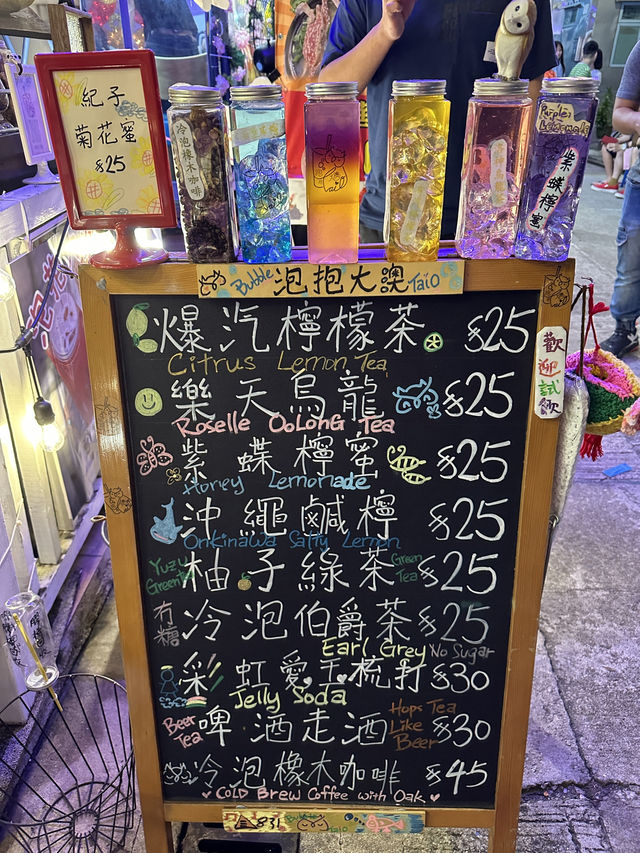 紀子
菊花蜜
$25
冷泡橡木咖啡
Purple Lemonade
紫蝶檸蜜
Bubble 泡抱大澳 Taio
爆汽檸檬茶 $25
Citrus Lemon Tea
樂天烏龍 $25
Roselle OoLong Tea
歡迎試飲
紫蝶檸蜜 $25
Honey Lemonade
沖繩鹹檸 $25
Onkinawa Salty Lemon
Yuzu Green Tea 柚子綠茶 Green Tea $25
冇糖 冷泡伯爵茶 $25
Earl Grey No Sugar
彩虹愛玉梳打 $30
Jelly Soda
Beer Tea 啤酒走酒 Hops Tea Like Beer $30
冷泡橡木咖啡 $45
COLD Brew Coffee with Oak
831 Bubble Taio